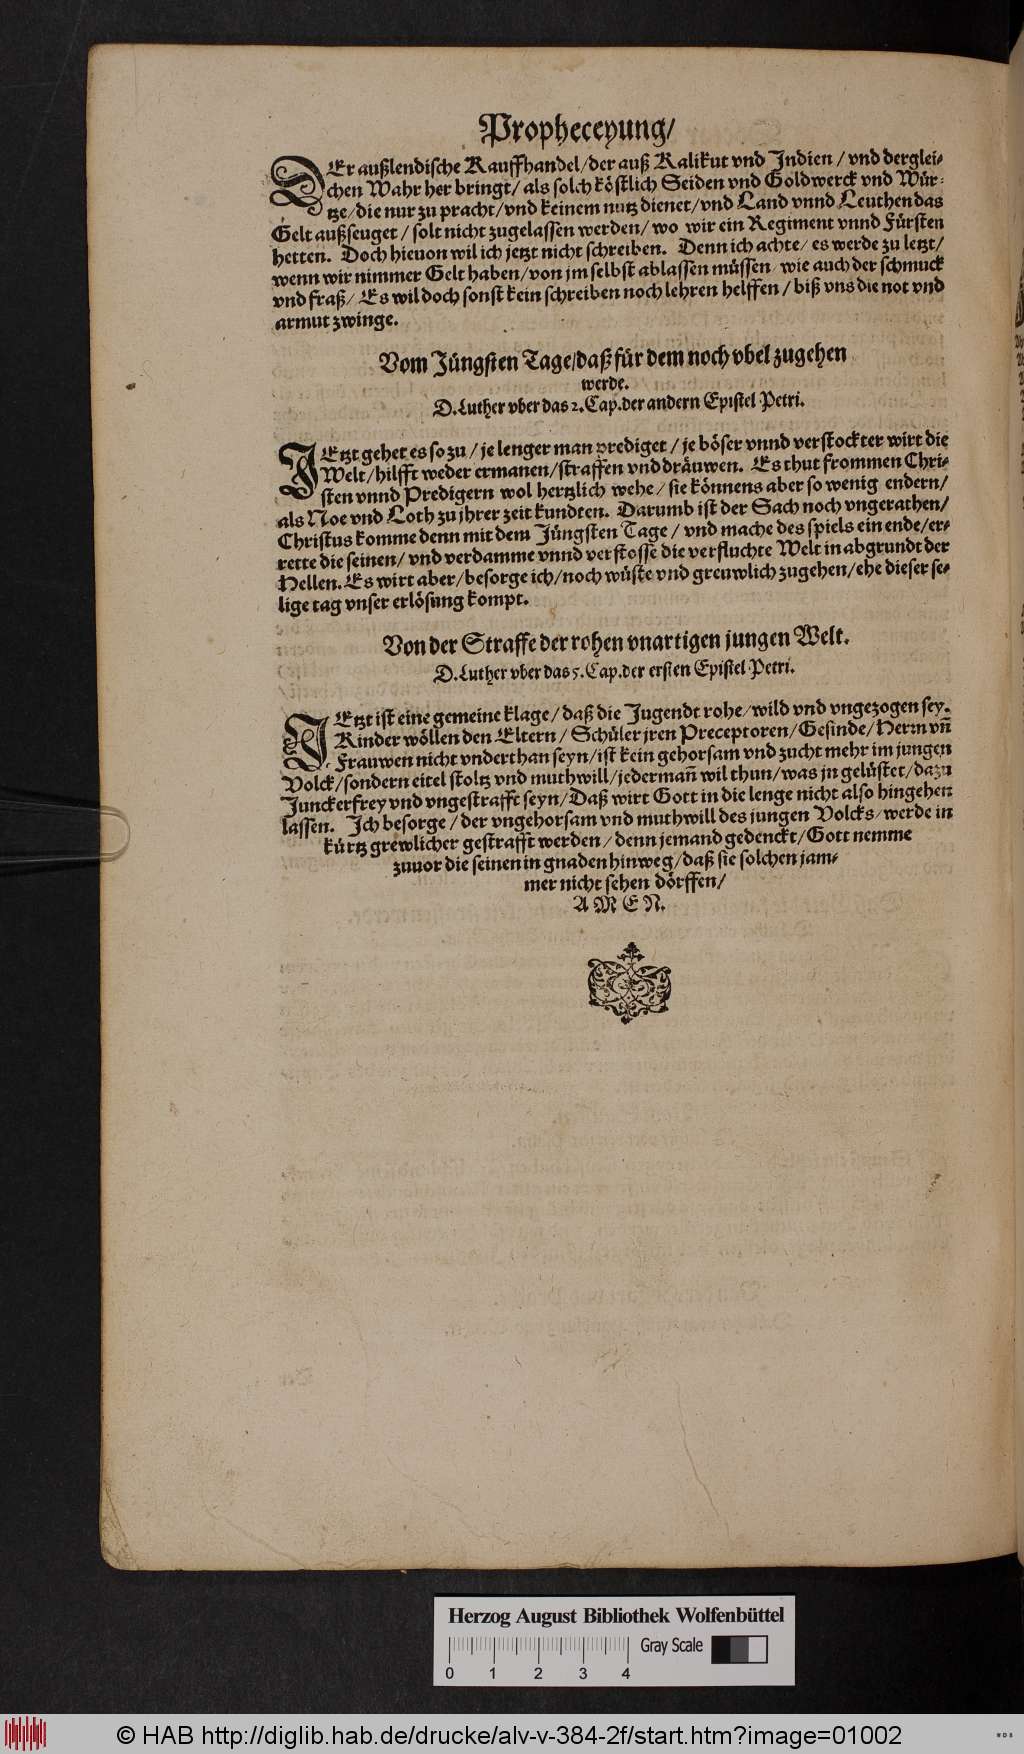 Propheceyung/
DEr außlendische Kauffhandel/der auß Kalikut vnd Indien/vnd derglei-
chen Wahr her bringt/als solch köstlich Seiden vnd Goldwerck vnd Wür-
tze/die nur zu pracht/vnd keinem nutz dienet/vnd Land vnnd Leuthen das
Gelt außseuget/solt nicht zugelassen werden/wo wir ein Regiment vnnd Fürsten
hetten. Doch hieuon wil ich jetzt nicht schreiben. Denn ich achte/es werde zu letzt/
wenn wir nimmer Gelt haben/von jm selbst ablassen müssen/wie auch der schmuck
vnd fraß/Es wil doch sonst kein schreiben noch lehren helffen/biß vns die not vnd
armut zwinge.
Vom Jüngsten Tage/daß für dem noch vbel zugehen
werde.
D.Luther vber das 2.Cap.der andern Epistel Petri.
IEtzt gehet es so zu/je lenger man prediget/je böser vnnd verstockter wirt die
Welt/hilfft weder ermanen/straffen vnd dräuwen. Es thut frommen Chri-
sten vnnd Predigern wol hertzlich wehe/sie könnens aber so wenig endern/
als Noe vnd Loth zu jhrer zeit kundten. Darumb ist der Sach noch vngerathen/
Christus komme denn mit dem Jüngsten Tage/vnd mache des spiels ein ende/er-
rette die seinen/vnd verdamme vnnd verstosse die verfluchte Welt in abgrundt der
Hellen. Es wirt aber/besorge ich/noch wüste vnd greuwlich zugehen/ehe dieser se-
lige tag vnser erlösung kompt.
Von der Straffe der rohen vnartigen jungen Welt.
D.Luther vber das 5.Cap.der ersten Epistel Petri.
IEtzt ist eine gemeine klage/daß die Jugendt rohe/wild vnd vngezogen sey.
Kinder wöllen den Eltern/Schüler jren Preceptoren/Gesinde/Herrn vñ
Frauwen nicht vnderthan seyn/ist kein gehorsam vnd zucht mehr im jungen
Volck/sondern eitel stoltz vnd muthwill/jederman̄ wil thun/was jn gelüstet/dazu
Junckerfrey vnd vngestrafft seyn/Daß wirt Gott in die lenge nicht also hingehen
lassen. Ich besorge/der vngehorsam vnd muthwill des jungen Volcks/werde in
kürtz grewlicher gestrafft werden/denn jemand gedenckt/Gott nemme
zuuor die seinen in gnaden hinweg/daß sie solchen jam-
mer nicht sehen dörffen/
A M E N.
Herzog August Bibliothek Wolfenbüttel
Gray Scale
0 1 2 3 4
© HAB http://diglib.hab.de/drucke/alv-v-384-2f/start.htm?image=01002